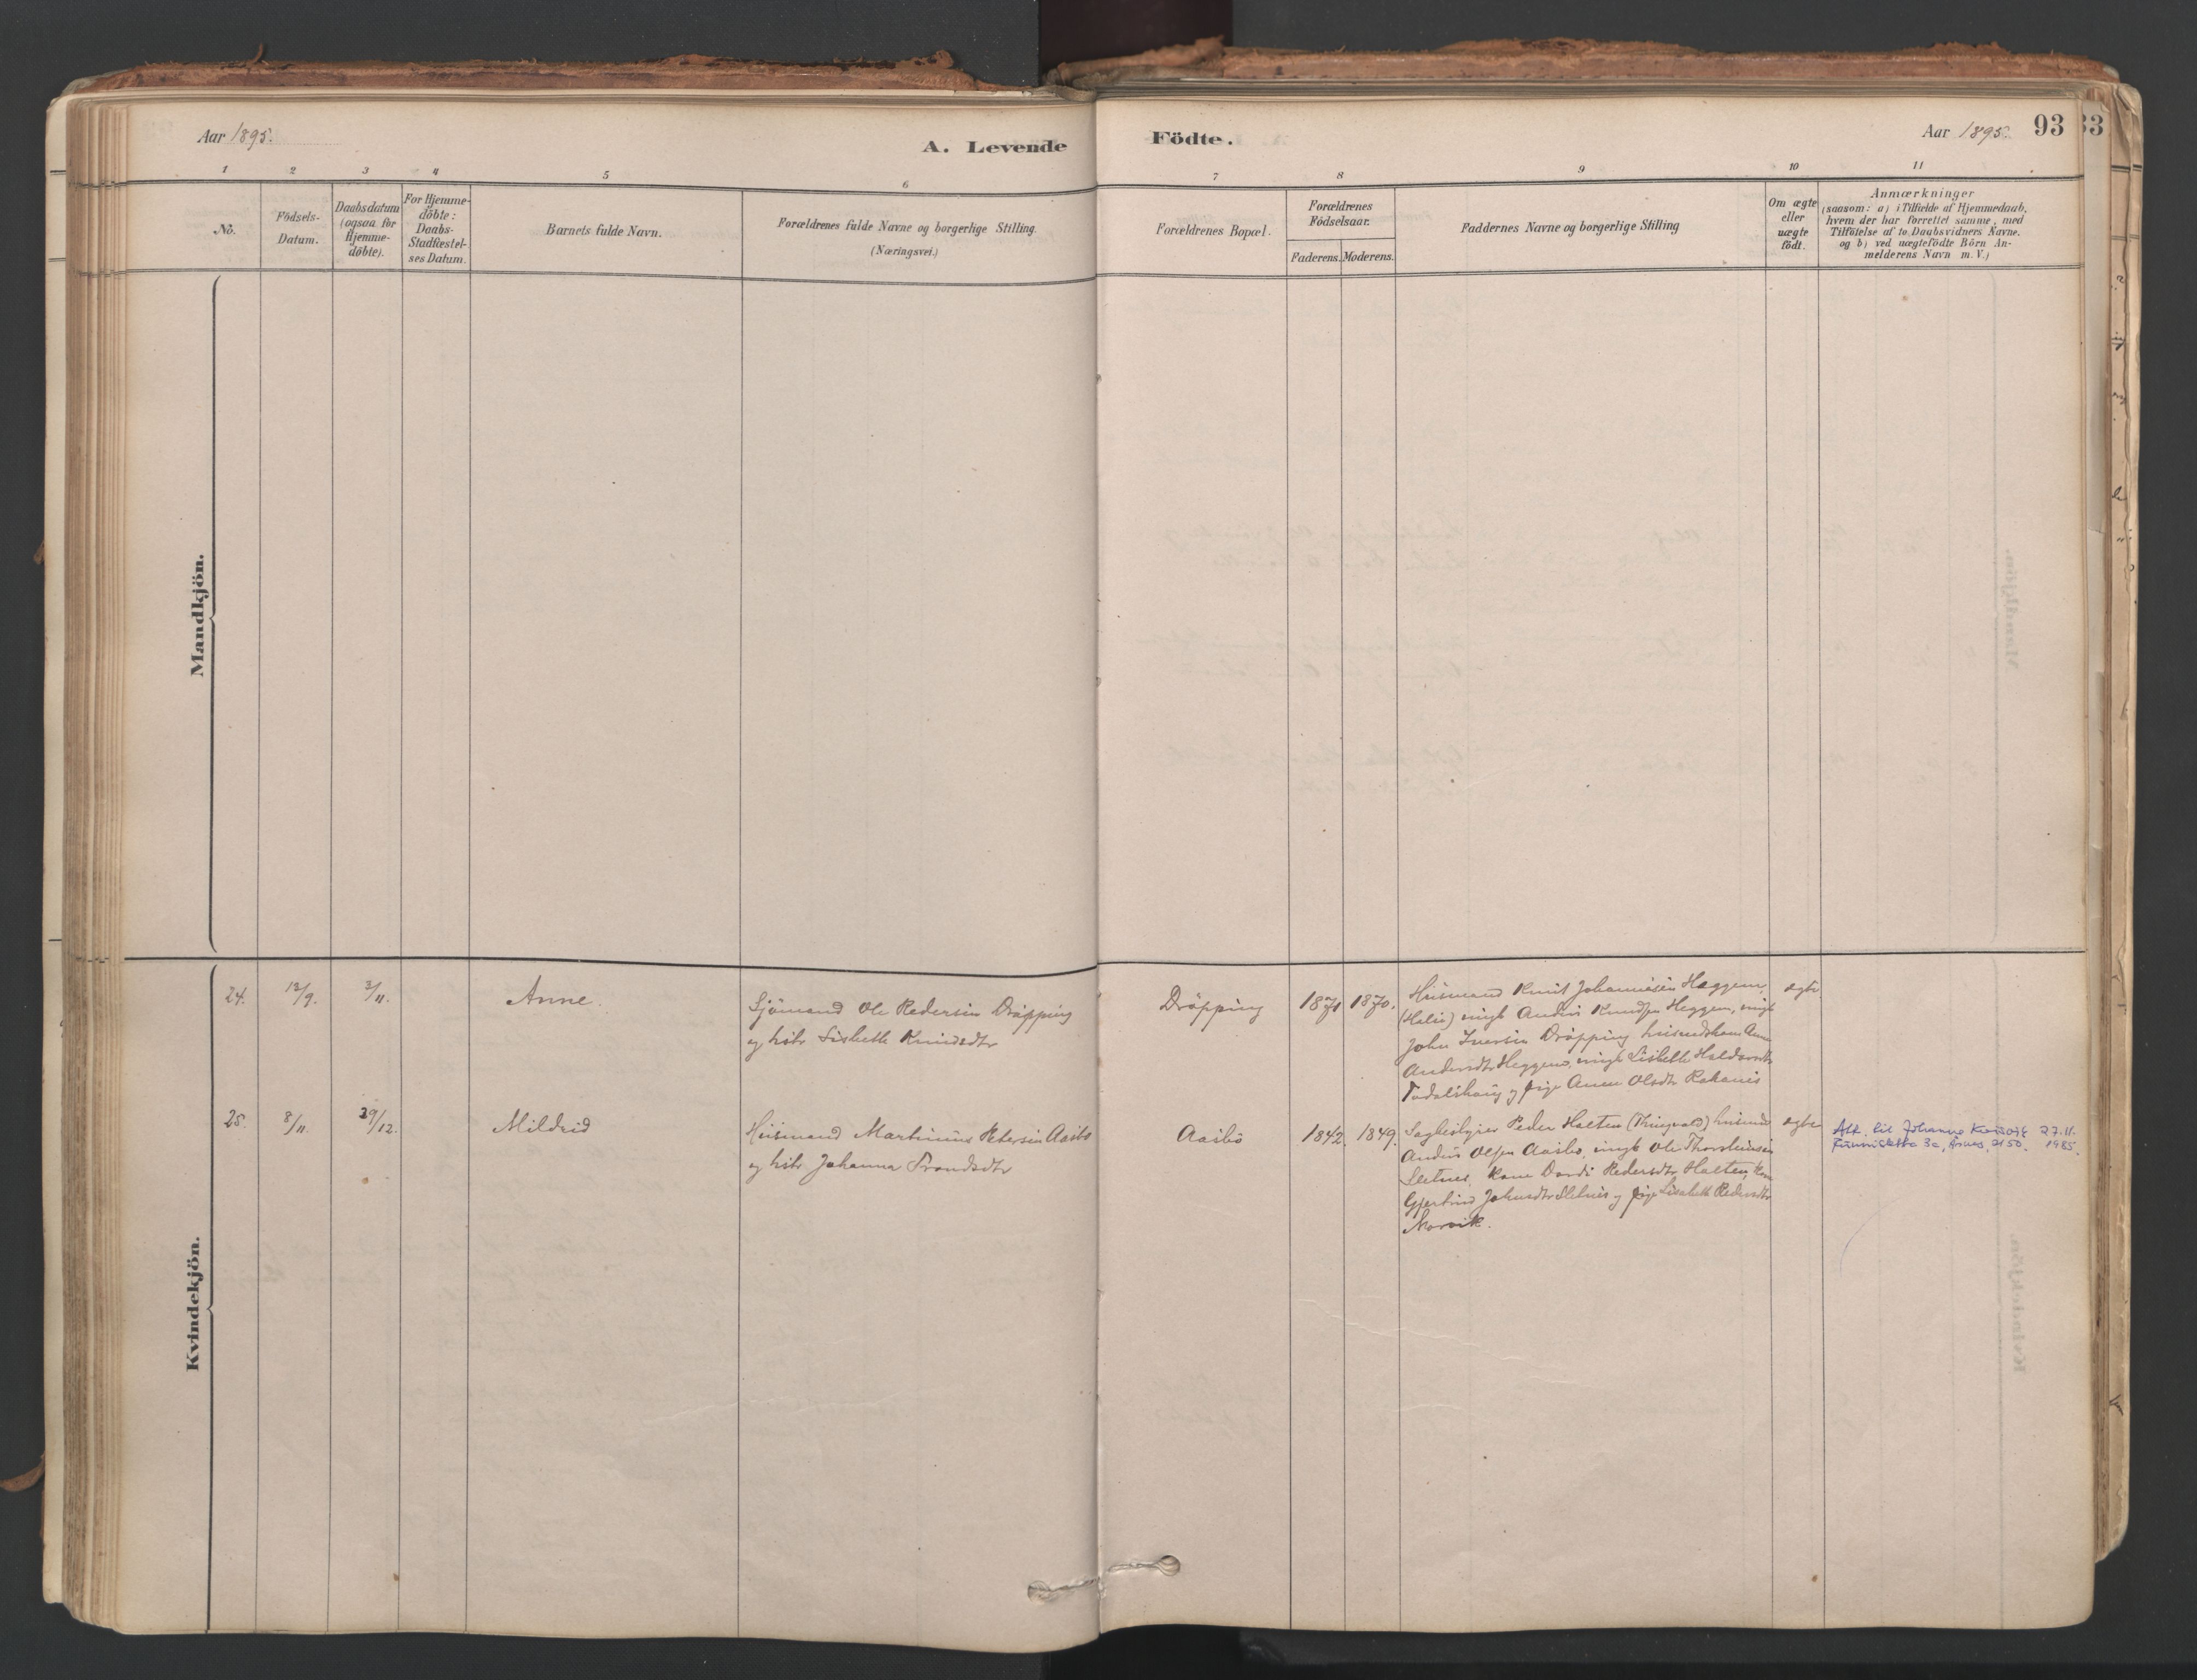 Aar 1895.
A. Levende
Födte.
Aar 1895.
93
33
1 2 3 4 5 6 7 8 9 10 11
No.
Födsels-
Datum.
Daabsdatum
(ogsaa for
Hjemme-
döbte).
For Hjemme-
döbte:
Daabs-
Stadfæstel-
ses Datum.
Barnets fulde Navn.
Forældrenes fulde Navne og borgerlige Stilling.
(Næringsvei.)
Forældrenes Bopæl.
Forældrenes
Födselsaar.
Faderens.
Moderens.
Faddernes Navne og borgerlige Stilling
Om ægte
eller
uægte
födt.
Anmærkninger
(saasom: a) i Tilfælde af Hjemmedaab,
hvem der har forrettet samme, med
Tilföielse af to Daabsvidners Navne,
og b) ved uægtefödte Börn An-
melderens Navn m. V.)
Mandkjön.
Kvindekjön.
24.
13/9.
3/11.
Anne.
Sjömand Ole Pedersen Dröpping
og hstr Lisbeth Knudsdtr
Dröpping
1871
1870.
Husmand Knut Johannesen Heggem
(Halsa) ungk Anders Knudsen Heggem, ungk
John Iversen Dröpping husmdskone Anne
Andersdtr Heggem, Lisbeth Haldorsdtr
og pige Anne Olsdtr
ægte
25.
8/11
29/12.
Mildrid
Husmand Martinus Petersen Aasbö
og hstr Johanna Trondsdtr
Aasbö
1842.
1849.
Sagbesityrer Peder Halten (Thingvold) husmd
Anders Olsen Aasbö, ungk Ole Thorsteinsen
Sletnes, kone Dordi Pedersdtr Halten, kone
Gjertrud Johnsdtr Sletnes og pige Lisabeth Pedersdtr
Norvik.
ægte
Att. til Johanne 27.11.
3c, Årnes, 2150. 1985.